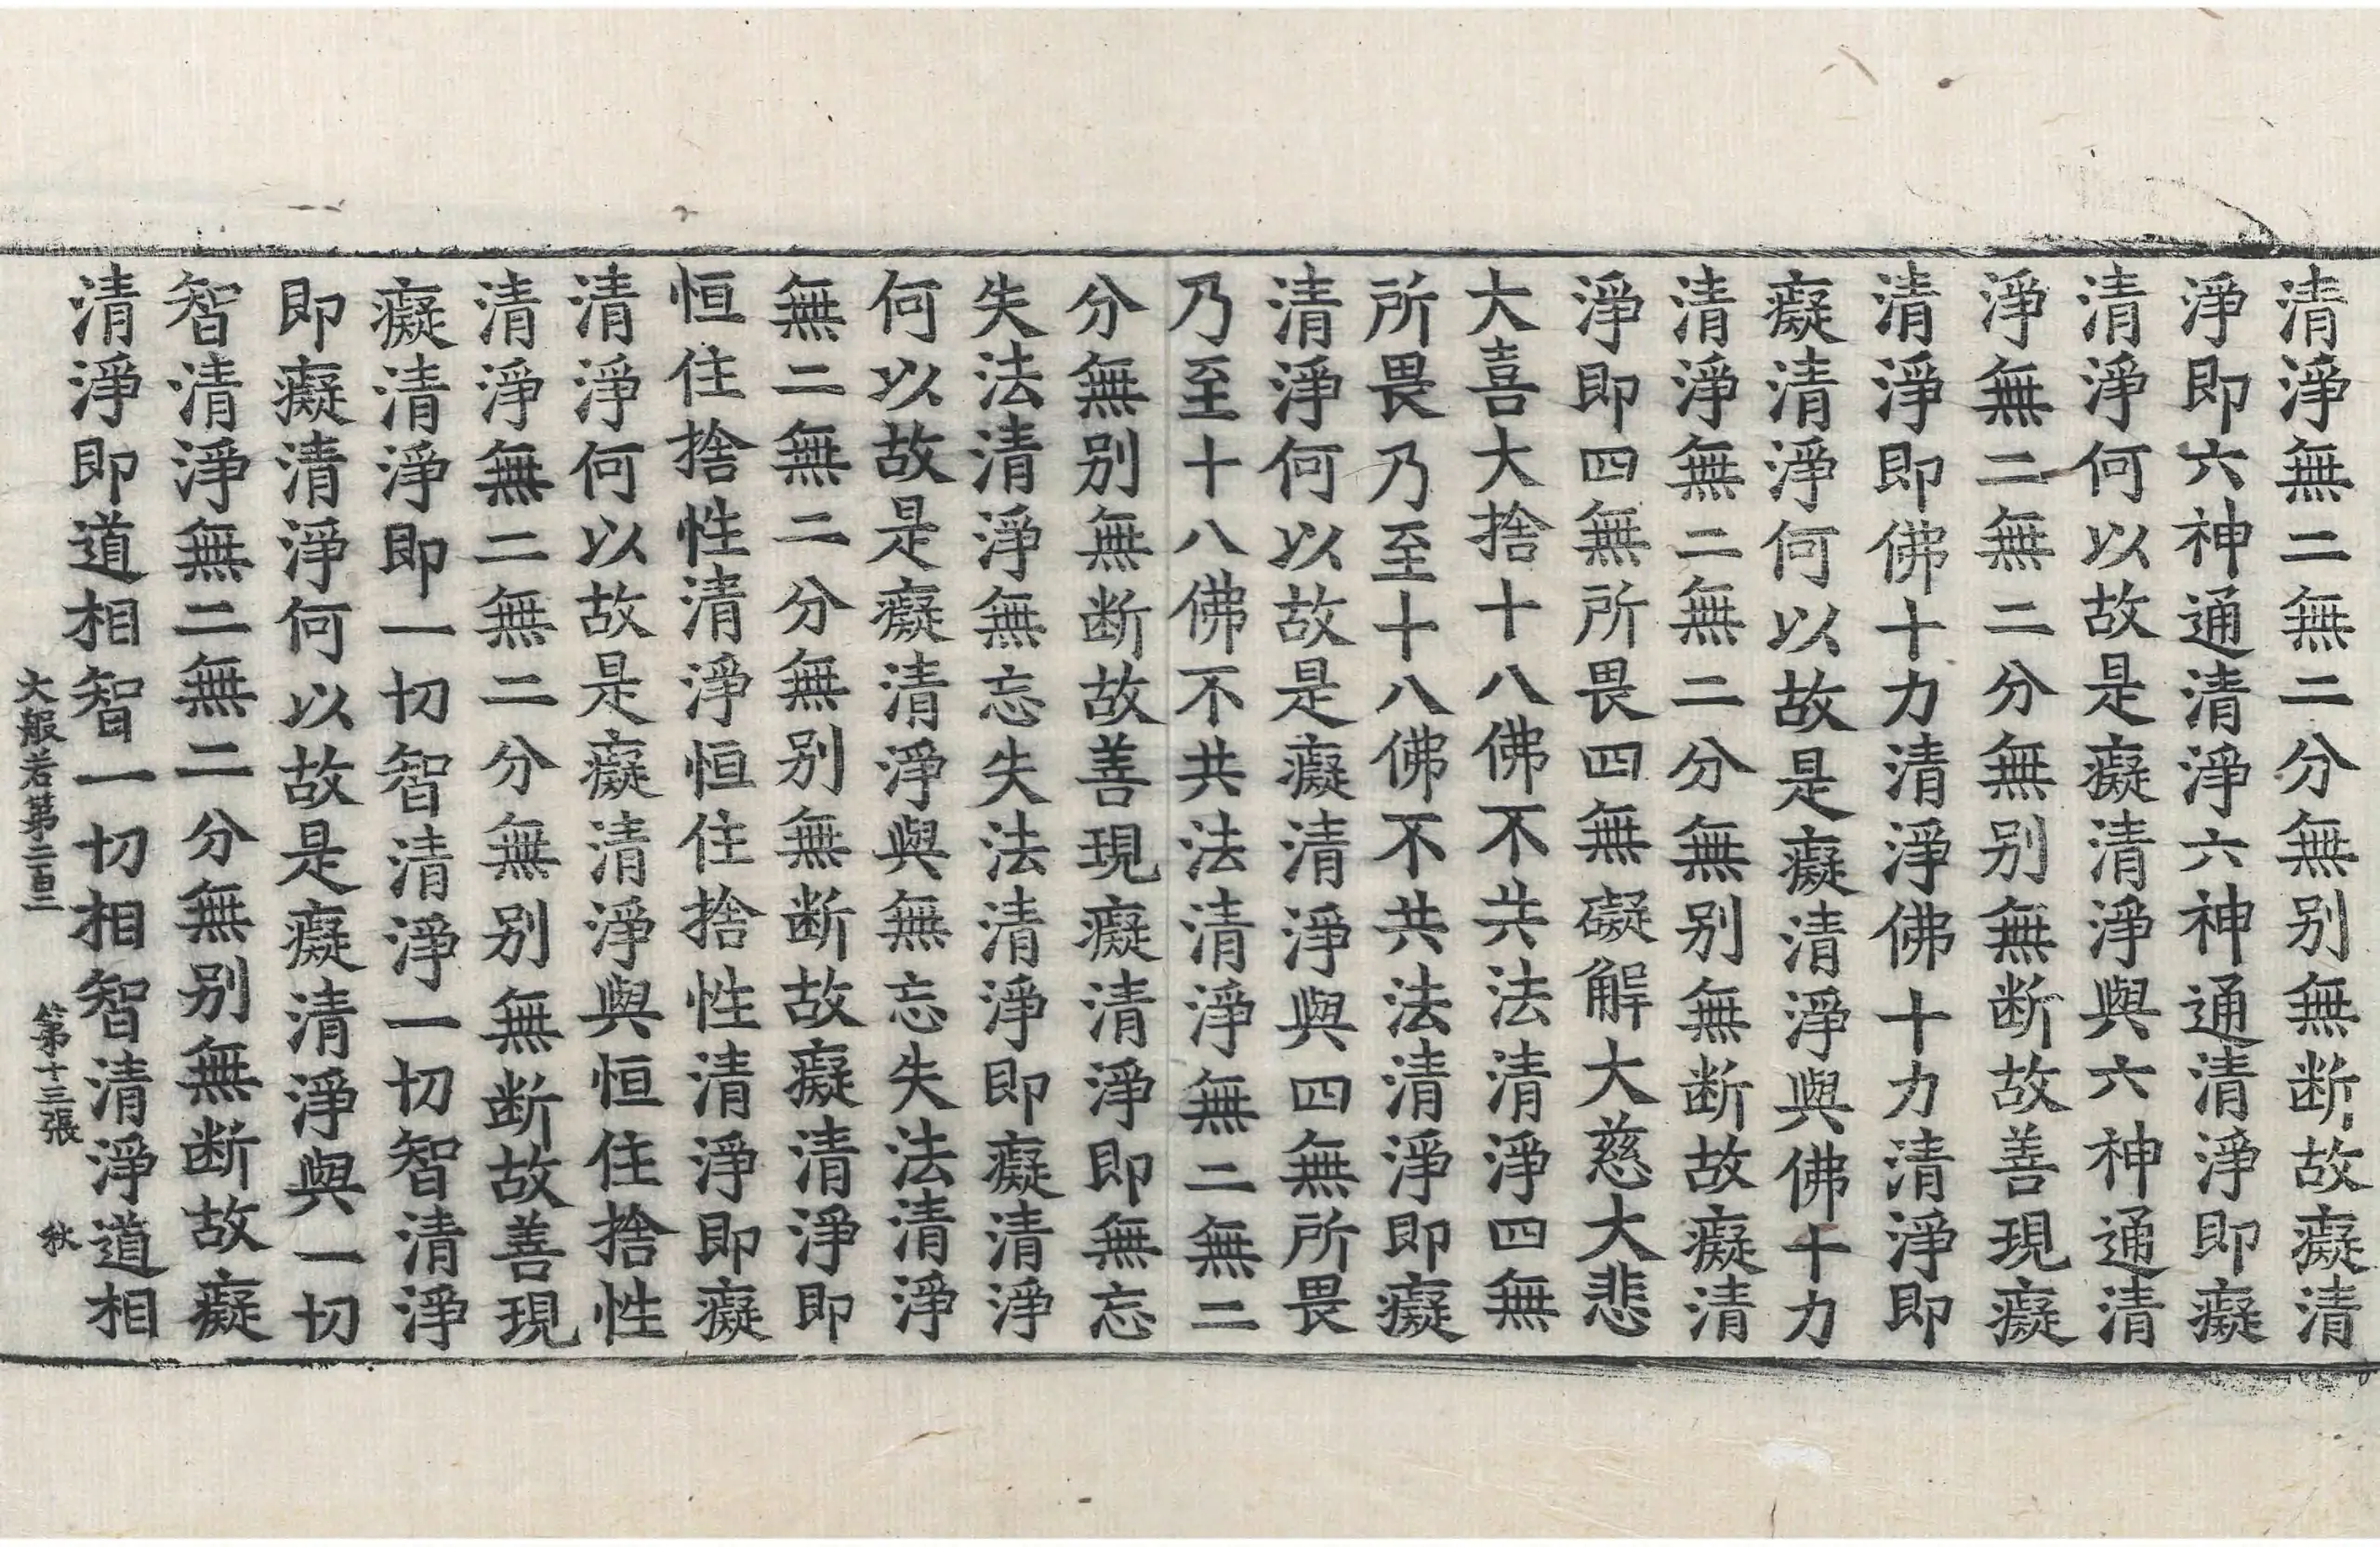 清淨無二無二分無別無断故癡清
淨即六神通清淨六神通清淨即癡
清淨何以故是癡清淨與六神通清
淨無二無二分無別無断故善現癡
清淨即佛十力清淨佛十力清淨即
癡清淨何以故是癡清淨與佛十力
清淨無二無二分無別無断故癡清
淨即四無所畏四無礙解大慈大悲
大喜大捨十八佛不共法清淨四無
所畏乃至十八佛不共法清淨即癡
清淨何以故是癡清淨與四無所畏
乃至十八佛不共法清淨無二無二
分無別無断故善現癡清淨即無忘
失法清淨無忘失法清淨即癡清淨
何以故是癡清淨與無忘失法清淨
無二無二分無別無断故癡清淨即
恒住捨性清淨恒住捨性清淨即癡
清淨何以故是癡清淨與恒住捨性
清淨無二無二分無別無断故善現
癡清淨即一切智清淨一切智清淨
即癡清淨何以故是癡清淨與一切
智清淨無二無二分無別無断故癡
清淨即道相智一切相智清淨道相
大般若第二百三 第十三張 秋